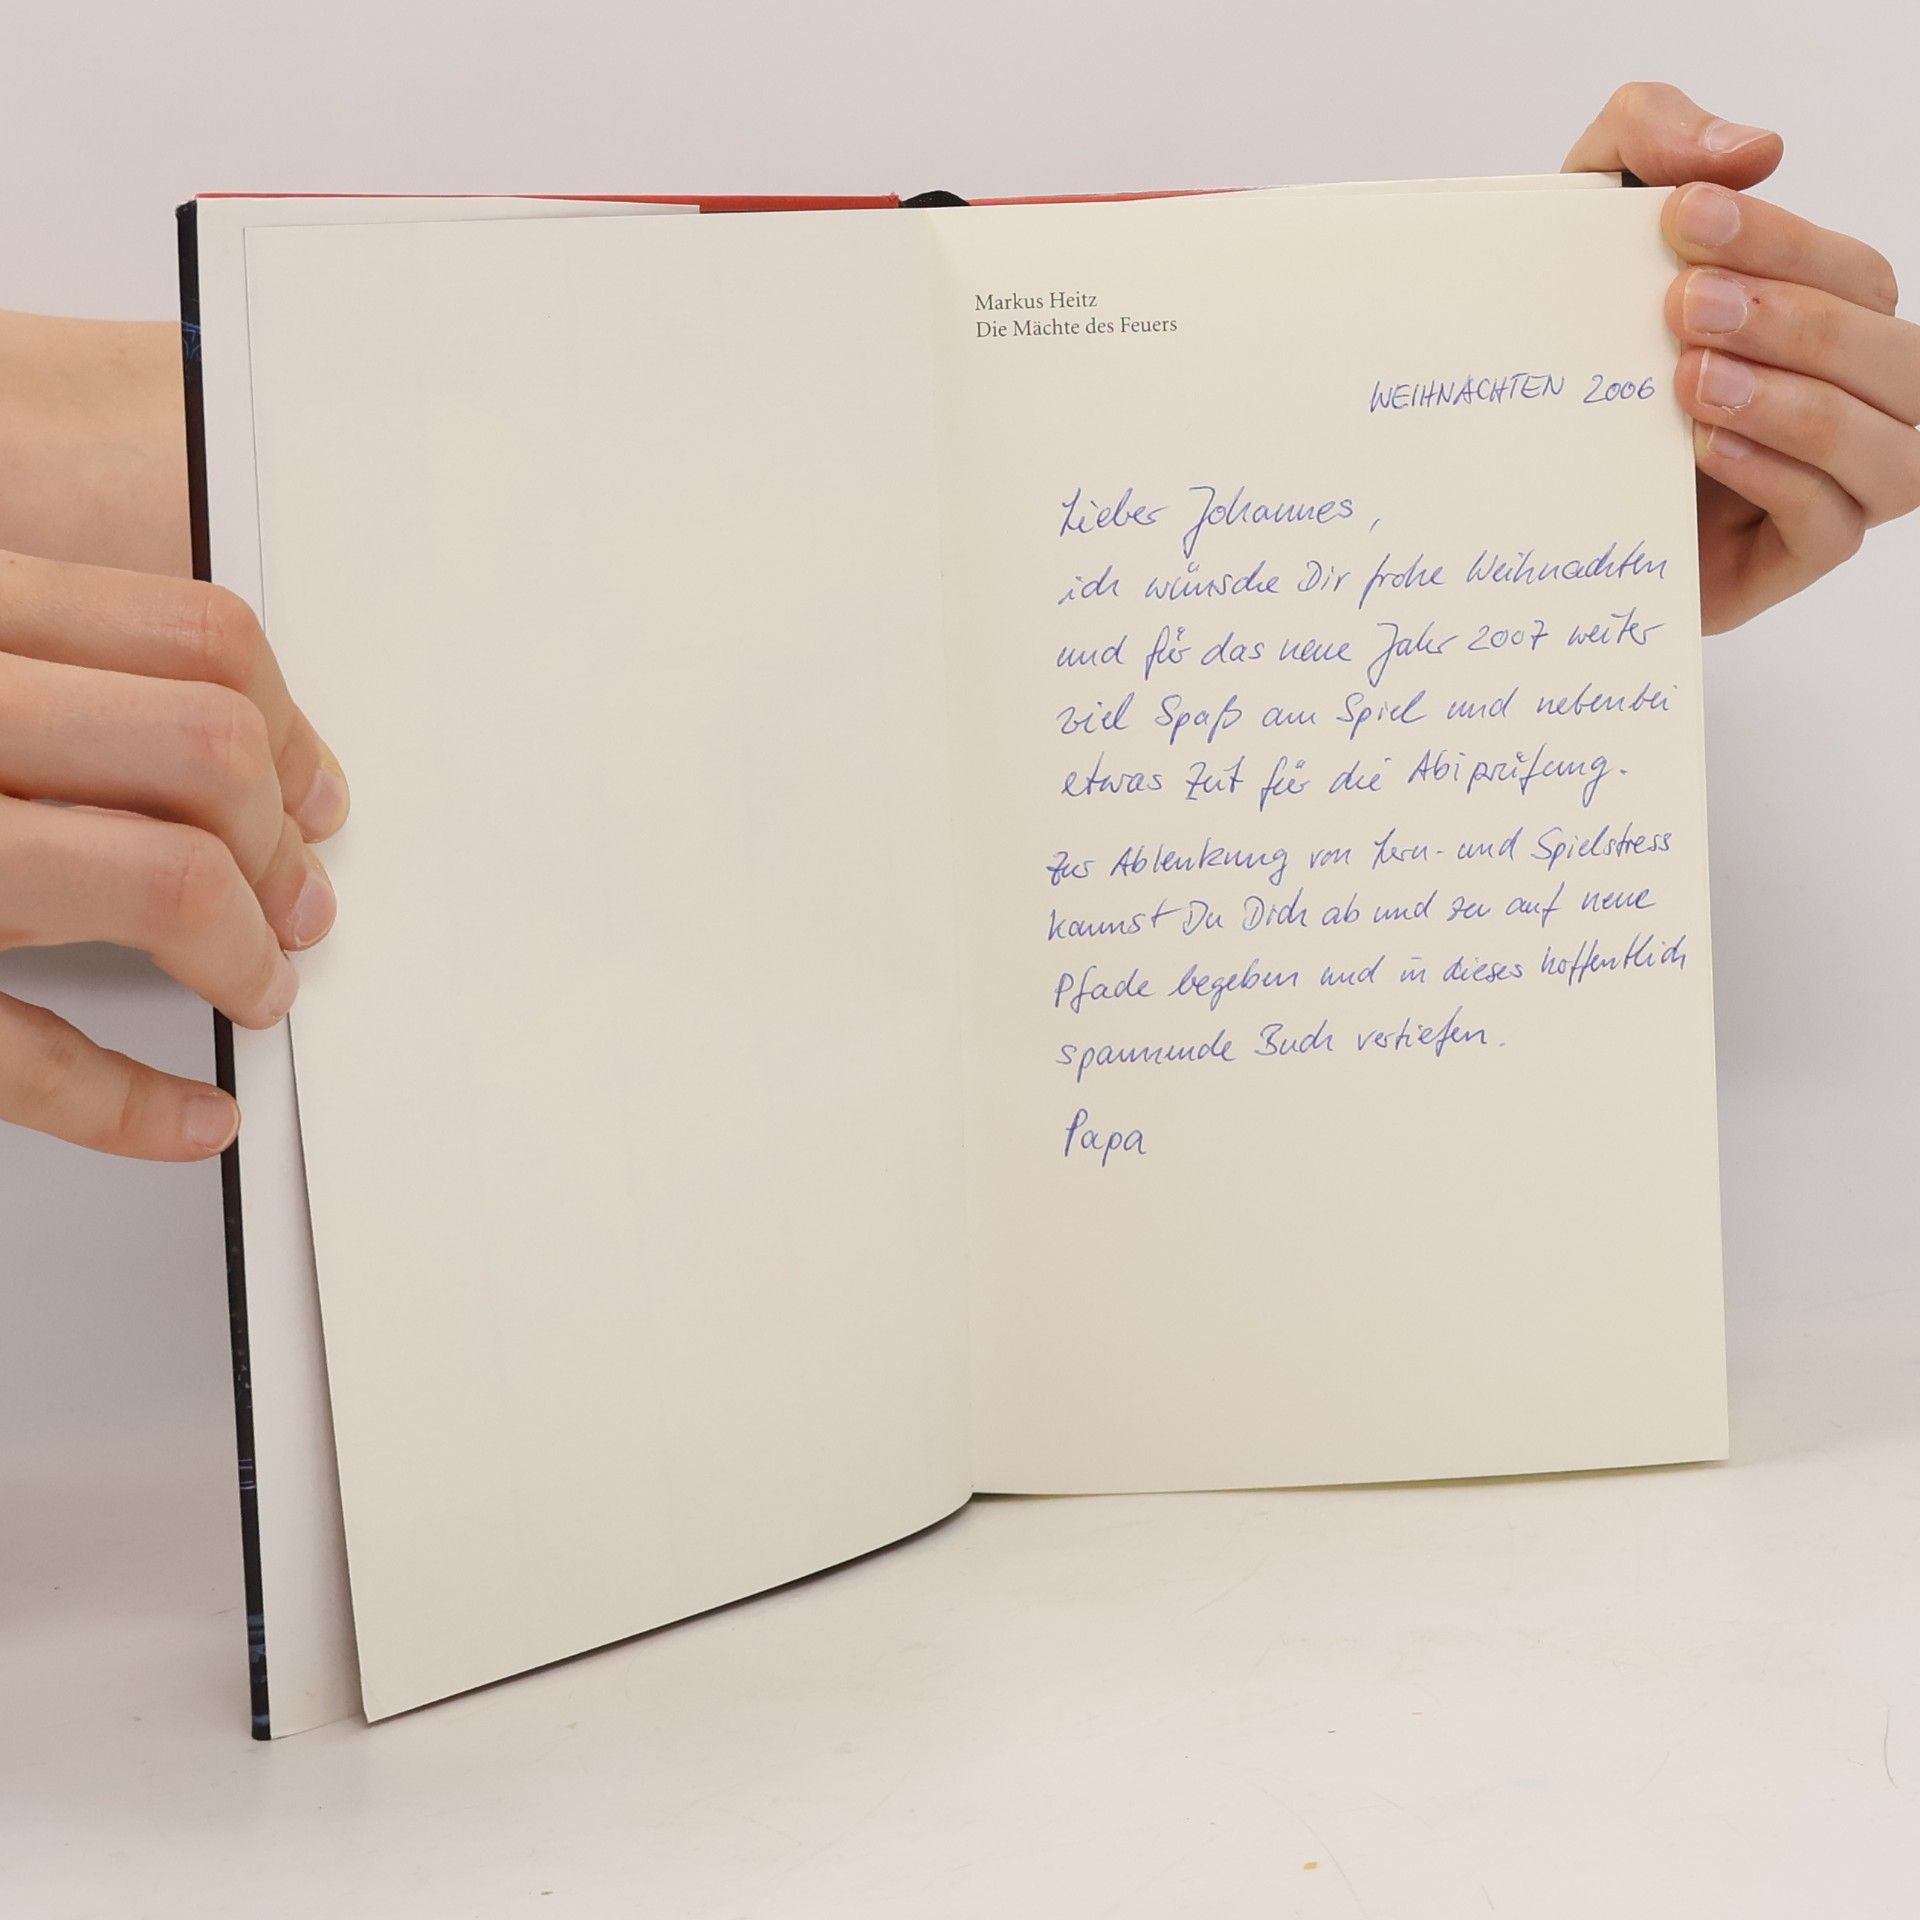 Markus Heitz
Die Mächte des Feuers
WEIHNACHTEN 2006
Lieber Johannes,
ich wünsche Dir frohe Weihnachten
und für das neue Jahr 2007 weiter
viel Spaß am Spiel und nebenbei
etwas Zeit für die Abiprüfung.
Zur Ablenkung von Lern- und Spielstress
kannst Du Dich ab und zu auf neue
Pfade begeben und in dieses hoffentlich
spannende Buch vertiefen.
Papa